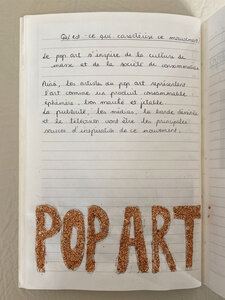 Qu'est-ce qui caractérise ce mouvement
Le pop art s'inspire de la culture de
masse et de la société de consommation
Ainsi, les artistes du pop art représentent
l'art comme un produit consommable
éphémère, bon marché et jetable.
La publicité, les médias, la bande dessinée
et la télévision vont être les principales
sources d'inspiration de ce mouvement.
POP ART